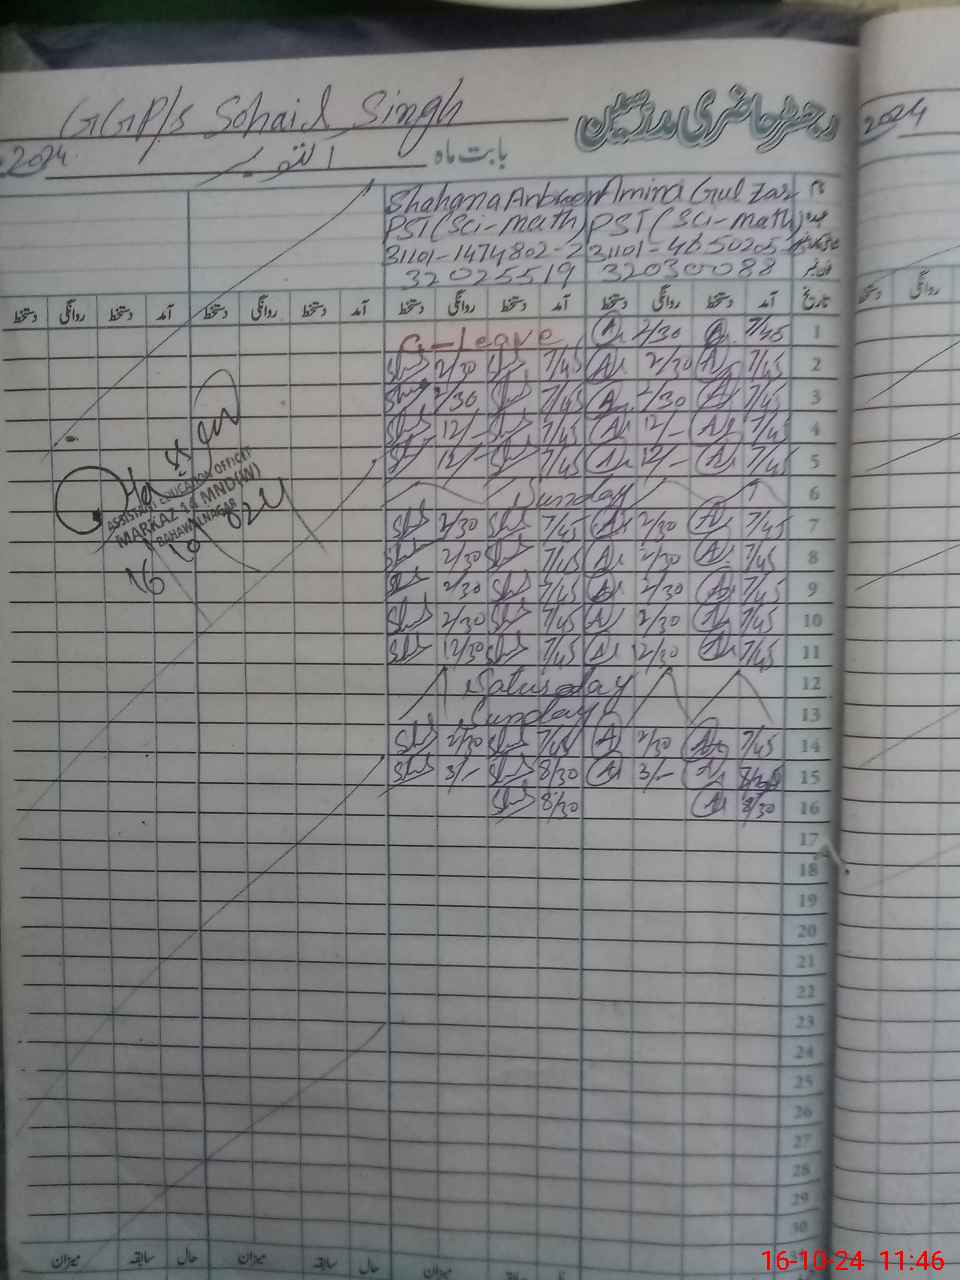 GGP/s Sohaid Singh
رجسٹر حاضری مدرسین
2024
بابت ماہ اکتوبر 2024
Shahana Amina Gulzar
PST (Sci-math) PST (Sci-math)
31101-1474802-2
32025519 32030088
دستخط روانگی دستخط آمد دستخط روانگی دستخط آمد دستخط روانگی دستخط آمد دستخط روانگی دستخط آمد تاریخ
دستخط روانگی
C-Leave 2/30 7/45 1
2/30 7/45 2/30 7/45 2
2/30 7/45 2/30 7/45 3
12/- 7/45 12/- 7/45 4
12/- 7/45 12/- 7/45 5
Sunday 6
2/30 7/45 2/30 7/45 7
2/30 7/45 2/30 7/45 8
2/30 7/45 2/30 7/45 9
2/30 7/45 2/30 7/45 10
12/30 7/45 12/30 7/45 11
Saturday 12
Sunday 13
2/30 7/45 2/30 7/45 14
3/- 8/30 3/- 8/30 15
8/30 8/30 16
17
18
19
20
21
22
23
24
25
26
27
28
29
30
31
ASSISTANT EDUCATION OFFICER
MARKAZ 14 MND(W)
BAHAWALNAGAR
16 10 024
میزان سابقہ حال میزان سابقہ حال میزان سابقہ حال
16-10-24 11:46